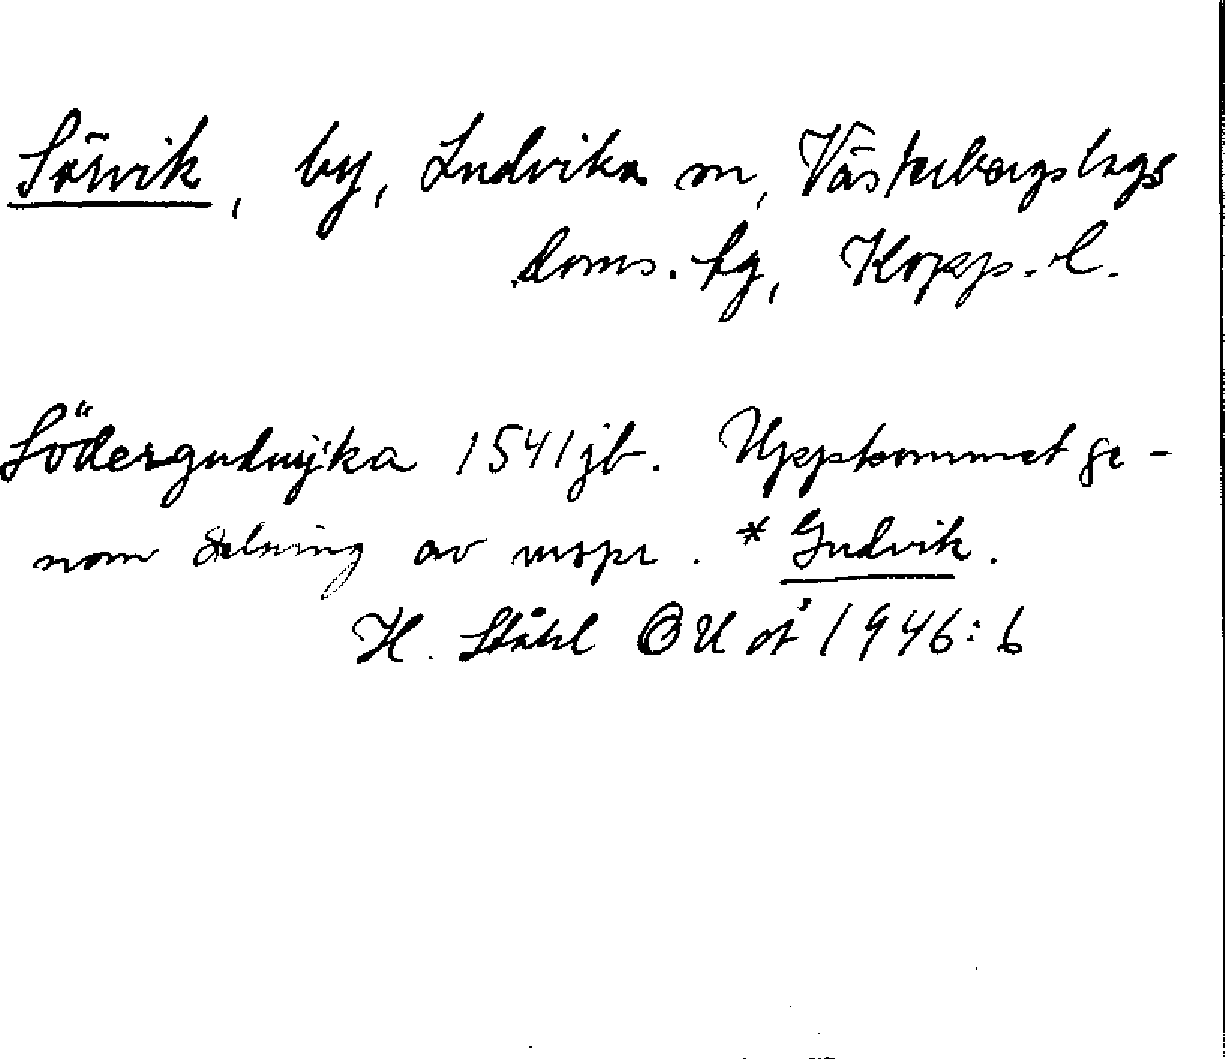 Sörvik, by, Ludvika sn, Västerbergslags
doms.hg, Kopp. l.
Södergudwijka 1541 jb. Uppkommet ge-
nom delning av urspr. *Gudvik.
H. Ståhl OUÅ 1946:6